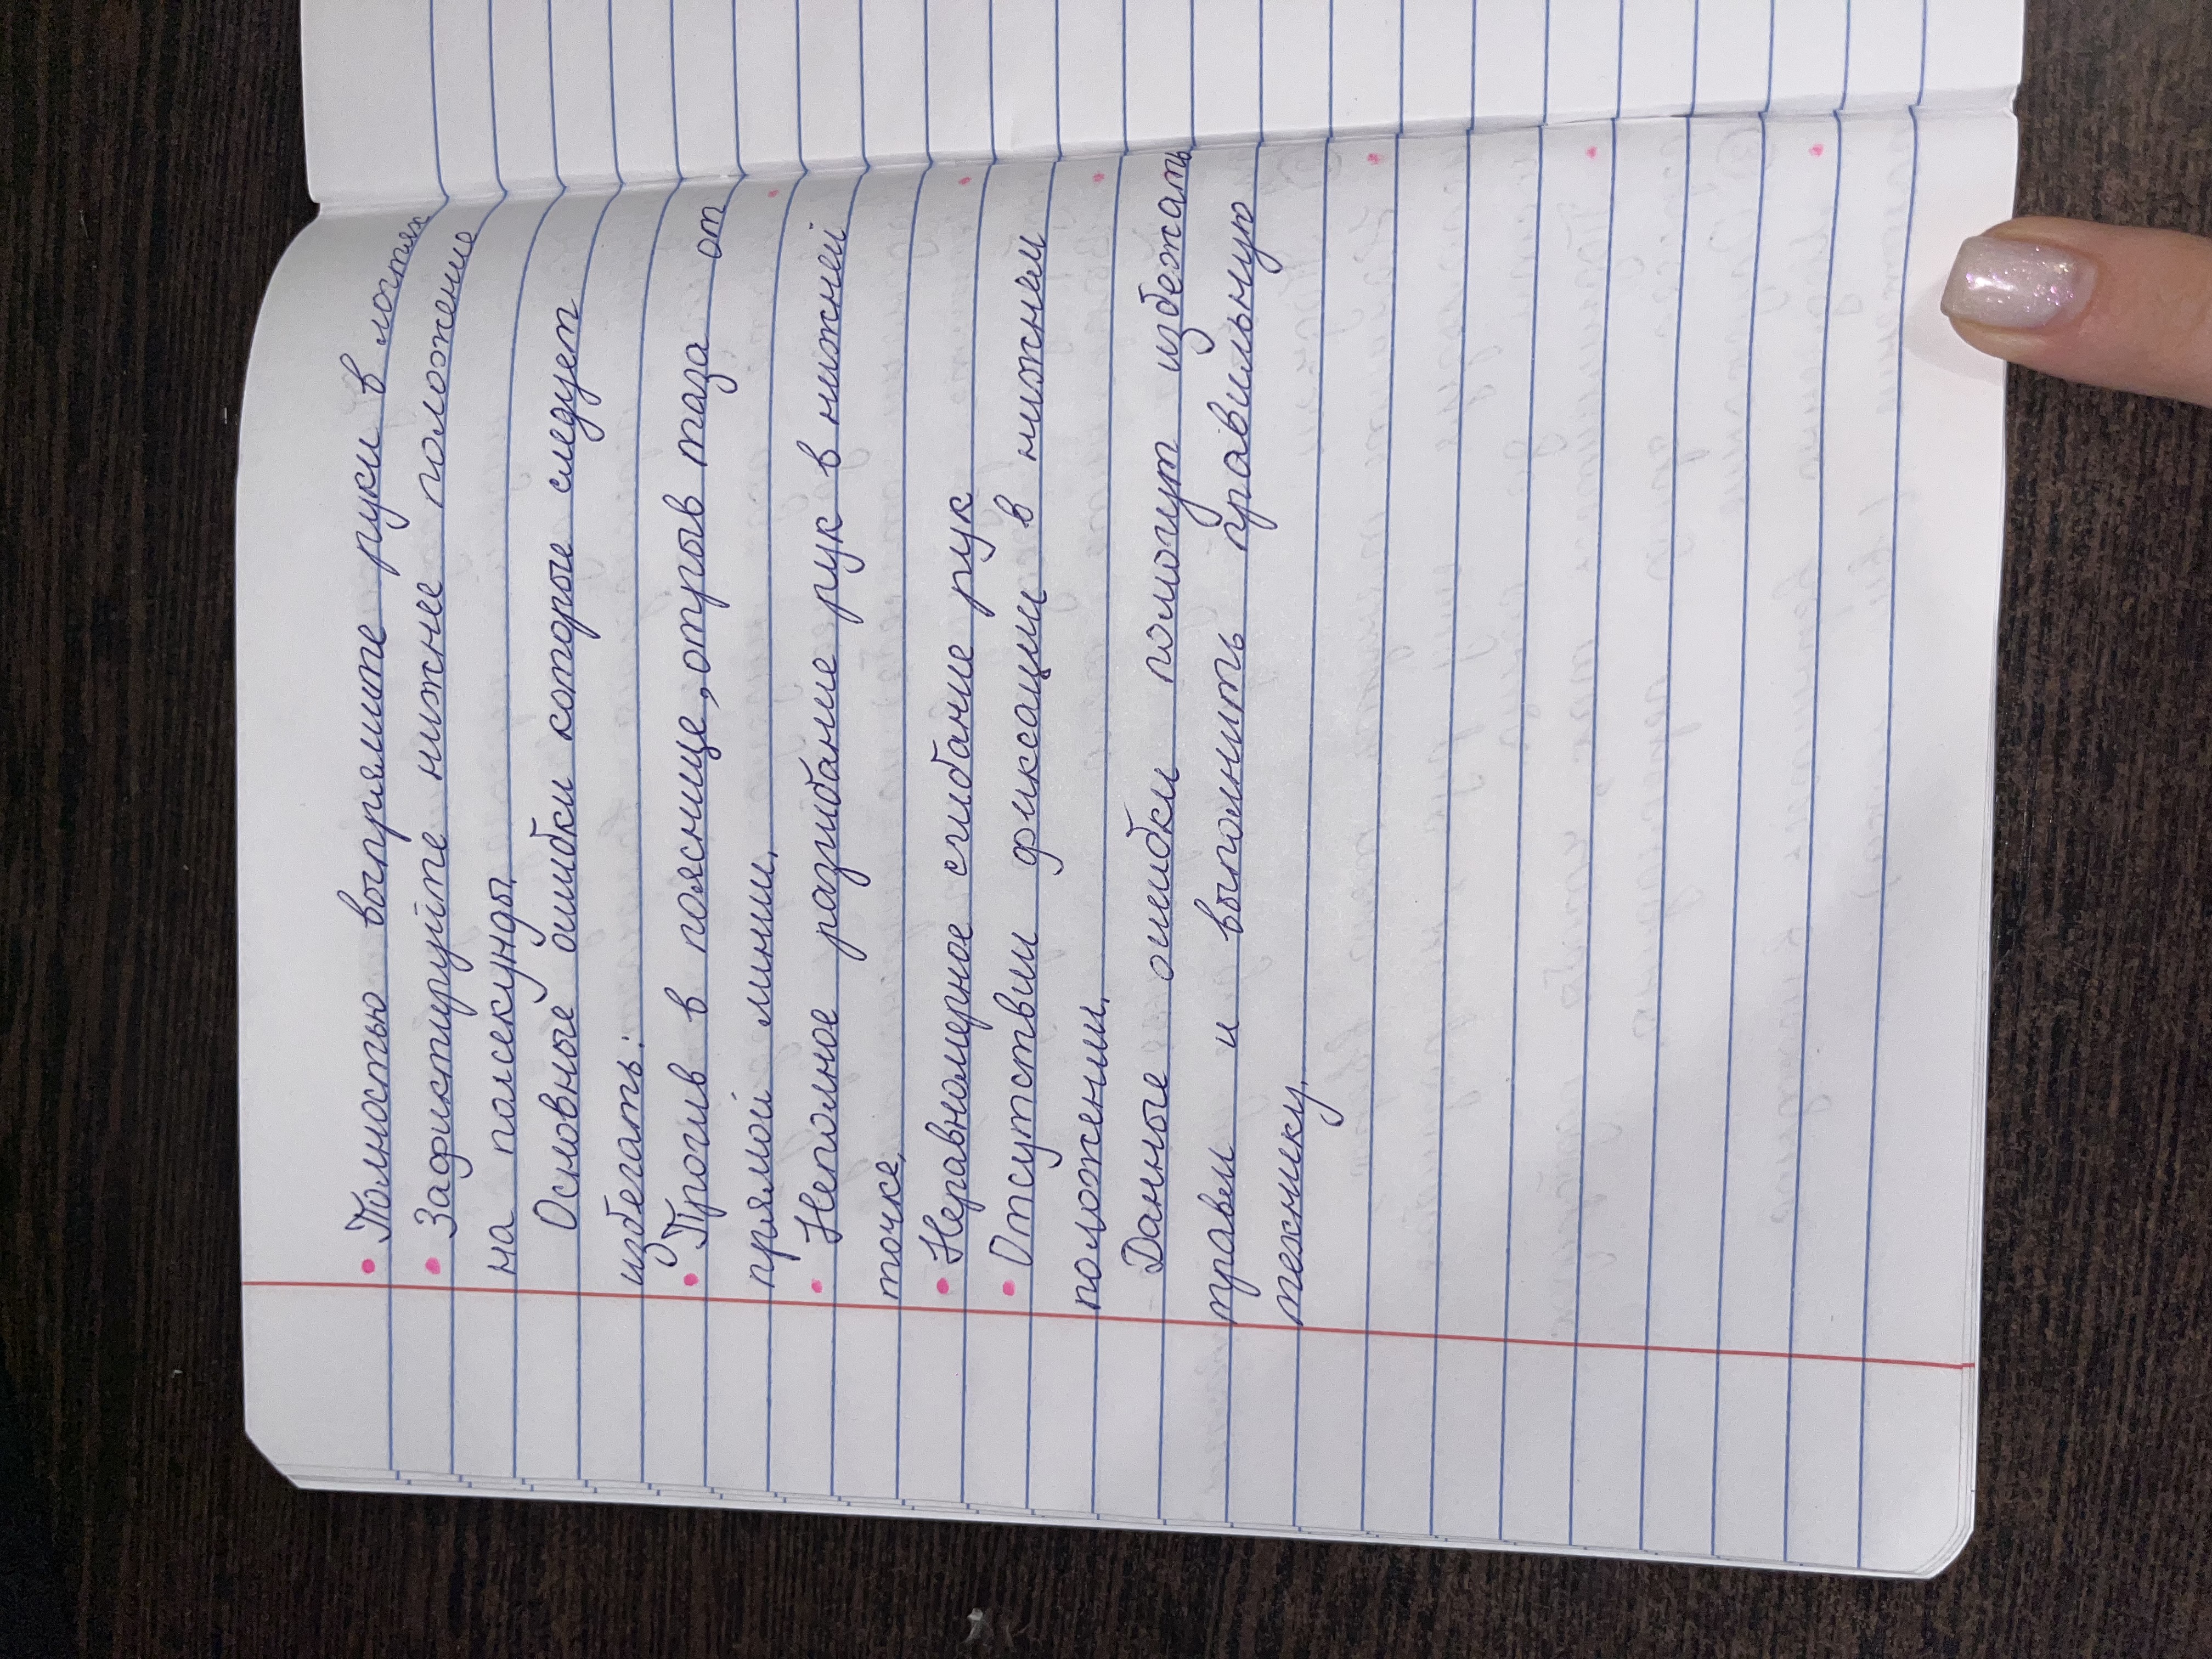 • Полностью выпрямите руки в локтях
• Зафиксируйте нижнее положение
на полсекунды.
Основные ошибки которые следует
избегать:
• Прогив в пояснице, отрыв таза от
прямой линии.
• Неполное разгибание рук в нижней
точке.
• Неравномерное сгибание рук
• Отсутствии фиксации в нижнем
положении.
Данные ошибки помогут избежать
травм и выполнить правильную
технику.